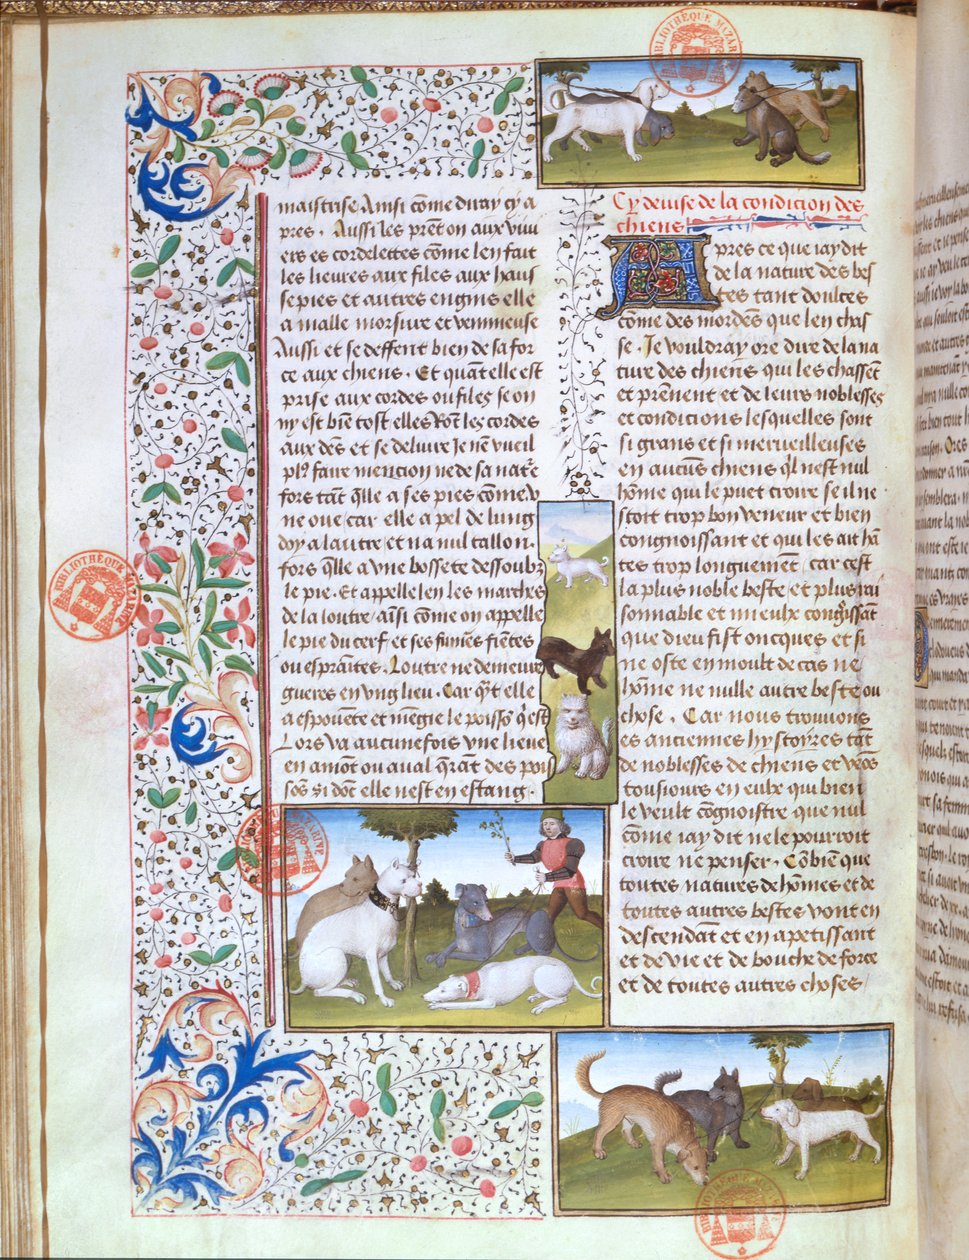 maistrise Ainsi cõme dit ay cy a
pres. Aussi les prẽt on aux viui
ers es cordelettes cõme len fait
les lieures aux files aux haus
sepies et autres engins elle
a malle morsure et venimeuse
Aussi et se deffent bien de sa for
ce aux chiens. Et quãt elle est
prise aux cordes ou files se on
ny est biẽ tost elles Rõt les cordes
aux dẽs et se deliure Je nẽ vueil
pl9 faire mencion ne de sa natr̃e
fors tãt q̃lle a ses pies cõme v
ne oue car elle a pel de lung
doy a lautre et na nul tallon.
fors q̃lle a vne bossete dessoubz
le pie. Et appelle len les marches
de la loutre aĩsi cõme on appelle
le pie du cerf et ses fumẽs fiẽtes
ou espraĩtes. Loutre ne demeure
gueres en vng lieu. Car q̃t elle
a espouẽte et mẽgie le poissõ q̃ est
Lors va aucunefois vne lieue
en amõt ou aual q̃rãt des poi
sõs si dõt elle nest en estang.
Cy deuise de la condicion des
chiens
Apres ce que iay dit
de la nature des bes
tes tant doulces
cõme des mordẽs que len chas
se. Je vouldray ore dire de la na
ture des chiens qui les chassẽt
et prẽnent et de leurs noblesses
et condicions lesquelles sont
si grans et si merueilleuses
en aucũs chiens q̃l nest nul
hõme qui le puet croire se il ne
estoit trop bon veneur et bien
congnoissant et qui les ait hã
tes trop longuemẽt car cest
la plus noble beste et plus rai
sonnable et mieulx congñssãt
que dieu fist oncques et si
ne oste en moult de cas ne
hõme ne nulle autre beste ou
chose. Car nous trouuons
es anciennes hystoyres tãt
de noblesses de chiens et veõs
tousiours en eulx qui bien
le veult cõgnoistre que nul
cõme iay dit ne le pourroit
croire ne penser. Cõbiẽ que
toutes natures de hõmes et de
toutes autres bestes vont en
descendãt et en apetissant
et de vie et de bouche de force
et de toutes autres choses
BIBLIOTHÈQUE MAZARINE
BIBLIOTHÈQUE MAZARINE